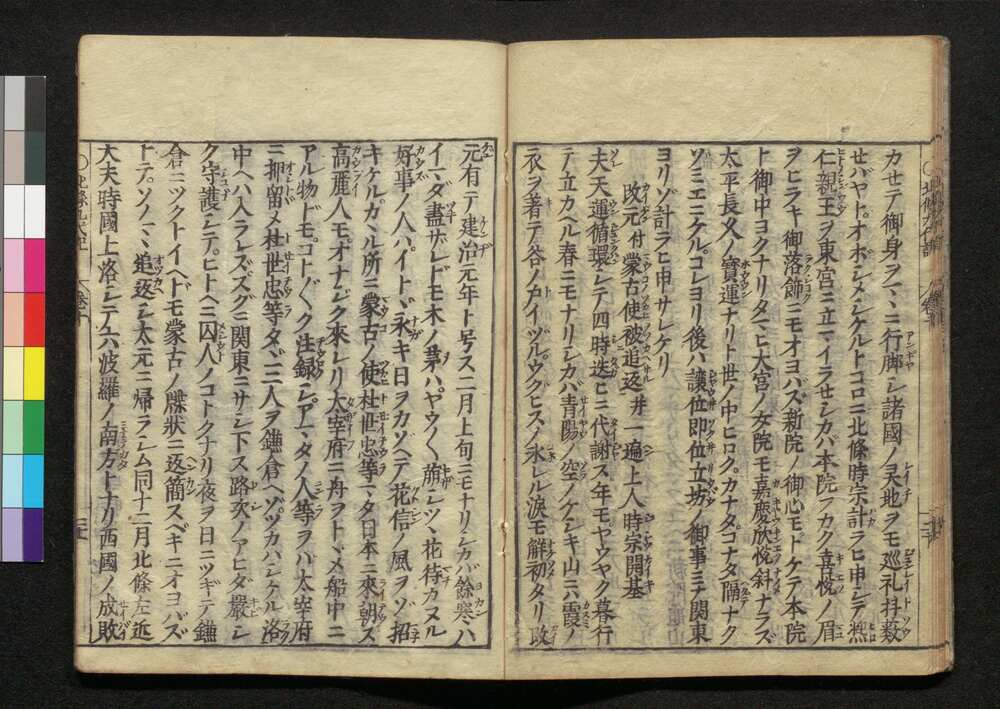 カセテ御身ヲヤヽニ行脚シ諸國ノ灵地ヲモ巡礼抖擻
セバヤトオボシメシケルトコロニ北條時宗計ラヒ申シテ熈
仁親王ヲ東宮ニ立マイラセシカバ本院ノカク喜悦ノ眉
ヲヒラキ御落飾ニモオヨバズ新院ノ御心モトケテ本院
ト御中ヨクナリタマヒ大宮ノ女院モ嘉慶欣悦斜ナラズ
太平長久ノ寳運ナリト世ノ中ヒロクカナタコナタ隔ナク
ソミエニケルコレヨリ後ハ讓位即位立坊ノ御事ミナ関東
ヨリゾ計ラヒ申サレケリ
改元付蒙古使被追返并一遍上人時宗開基
夫天運循環シテ四時迭ヒニ代謝ス年モヤウヤク暮行
テ立カヘル春ニモナリシカバ青陽ノ空ノケシキ山ニ霞ノ
衣ヲ著テ谷ノトイヅルウグヒスノ氷レル涙モ解初タリ改
元有テ建治元年ト号ス二月上旬ニモナリシカバ餘寒ハ
イマダ盡サレドモ木ノ芽ハヤウ〱萠シツヽ花待カヌル
好事ノ人ハイトヾ永キ日ヲカゾヘテ花信ノ風ヲゾ招
キケルカヽル所ニ蒙古ノ使杜世忠等マタ日本ニ來朝ス
高麗人モオナジク來レリ太宰府ニ舟ヲトヾメ船中ニ
アル物ドモコト〲ク注録シアマタノ人等ヲハ太宰府
ニ抑留メ杜世忠等タヾ三人ヲ鎌倉ヘゾツカハシケル洛
中ヘハ入ラレズスグニ関東ニサシ下ス路次ノアヒダ嚴シ
ク守護シテヒトヘニ囚人ノコトクナリ夜ヲ日ニツギテ鎌
倉ニツクトイヘドモ蒙古ノ牒状ニ返簡スベキニオヨバズ
トテソノマヽ追返シ太元ニ帰ラシム同十二月北條左近
大夫時國上洛シテ六波羅ノ南方トナリ西國ノ成敗